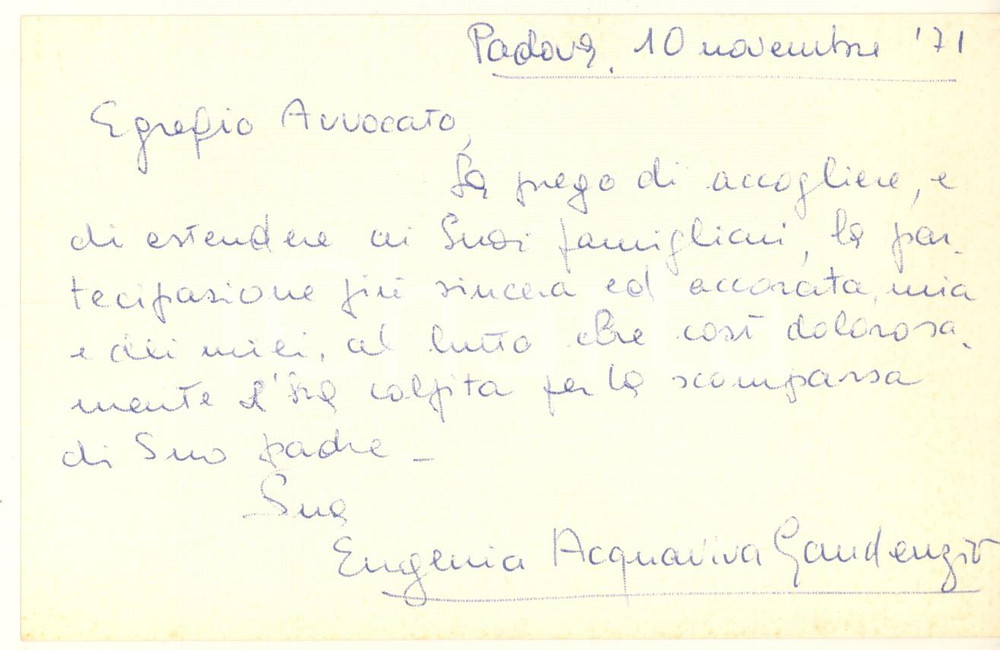 Padova, 10 novembre '71
Egregio Avvocato,
La prego di accogliere, e
di estendere ai Suoi famigliari, la par-
tecipazione più sincera ed accorata, mia
e dei miei, al lutto che così dolorosa-
mente L'ha colpita per la scomparsa
di Suo padre –
Sua
Eugenia Acquaviva Gaudenzio